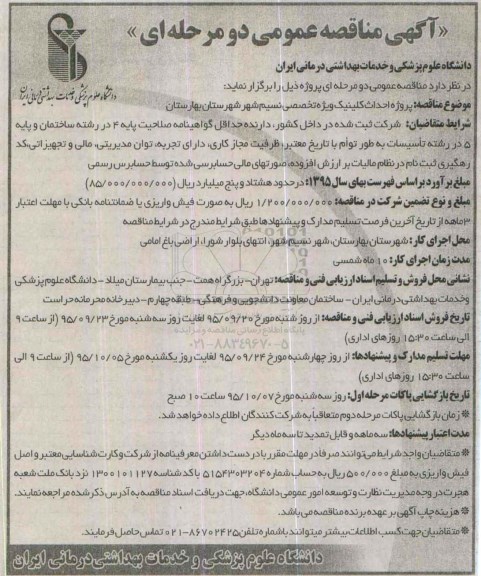 «آگهی مناقصه عمومی دو مرحله ای»
دانشگاه علوم پزشکی و خدمات بهداشتی درمانی ایران
دانشگاه علوم پزشکی و خدمات بهداشتی درمانی ایران
در نظر دارد مناقصه عمومی دو مرحله ای پروژه ذیل را برگزار نماید:
موضوع مناقصه: پروژه احداث کلینیک ویژه تخصصی نسیم شهر شهرستان بهارستان
شرایط متقاضیان: شرکت ثبت شده در داخل کشور، دارنده حداقل گواهینامه صلاحیت پایه ۴ در رشته ساختمان و پایه
۵ در رشته تأسیسات به طور توأم با تاریخ معتبر، ظرفیت مجاز کاری، دارای تجربه، توان مدیریتی، مالی و تجهیزاتی، کد
رهگیری ثبت نام در نظام مالیات بر ارزش افزوده، صورتهای مالی حسابرسی شده توسط حسابرس رسمی
مبلغ برآورد بر اساس فهرست بهای سال ۱۳۹۵: در حدود هشتاد و پنج میلیارد ریال (۸۵/۰۰۰/۰۰۰/۰۰۰)
مبلغ و نوع تضمین شرکت در مناقصه: ۱/۲۰۰/۰۰۰/۰۰۰ ریال به صورت فیش واریزی یا ضمانتنامه بانکی با مهلت اعتبار
۳ ماهه از تاریخ آخرین فرصت تسلیم مدارک و پیشنهادها طبق شرایط مندرج در شرایط مناقصه
محل اجرای کار: شهرستان بهارستان، شهر نسیم شهر، انتهای بلوار شورا، اراضی باغ امامی
مدت زمان اجرای کار: ۱۰ ماه شمسی
نشانی محل فروش و تسلیم اسناد ارزیابی فنی و مناقصه: تهران- بزرگراه همت- جنب بیمارستان میلاد - دانشگاه علوم پزشکی
و خدمات بهداشتی درمانی ایران - ساختمان معاونت دانشجویی و فرهنگی - طبقه چهارم - دبیرخانه محرمانه حراست
تاریخ فروش اسناد ارزیابی فنی و مناقصه: از روز شنبه مورخ ۹۵/۰۹/۲۰ لغایت روز سه شنبه مورخ ۹۵/۰۹/۲۳ (از ساعت ۹
الی ساعت ۱۵:۳۰ روزهای اداری)
مهلت تسلیم مدارک و پیشنهادها: از روز چهارشنبه مورخ ۹۵/۰۹/۲۴ لغایت روز یکشنبه مورخ ۹۵/۱۰/۰۵ (از ساعت ۹ الی
ساعت ۱۵:۳۰ روزهای اداری)
۰۲۱-۸۸۳۴۹۶۷۰-۵
تاریخ بازگشایی پاکات مرحله اول: روز سه شنبه مورخ ۹۵/۱۰/۰۷ ساعت ۱۰ صبح
※ زمان بازگشایی پاکات مرحله دوم متعاقباً به شرکت کنندگان اطلاع داده خواهد شد.
مدت اعتبار پیشنهادها: سه ماهه و قابل تمدید تا سه ماه دیگر
※ متقاضیان واجد شرایط می توانند صرفا در مهلت مقرر با در دست داشتن معرفینامه از شرکت و کارت شناسایی معتبر و اصل
فیش واریزی به مبلغ ۵۰۰/۰۰۰ ریال به حساب شماره ۵۱۵۴۳۰۳۲۰۴ با کد شناسه ۱۳۰۰۱۰۱۱۲۷ نزد بانک ملت شعبه
هجرت در وجه مدیریت نظارت و توسعه امور عمومی دانشگاه، جهت دریافت اسناد مناقصه به آدرس ذکر شده مراجعه نمایند.
※ هزینه چاپ آگهی بر عهده برنده مناقصه می باشد.
※ متقاضیان جهت کسب اطلاعات بیشتر میتوانند با شماره تلفن ۸۶۷۰۲۴۲۵-۰۲۱ تماس حاصل فرمایند.
دانشگاه علوم پزشکی و خدمات بهداشتی درمانی ایران